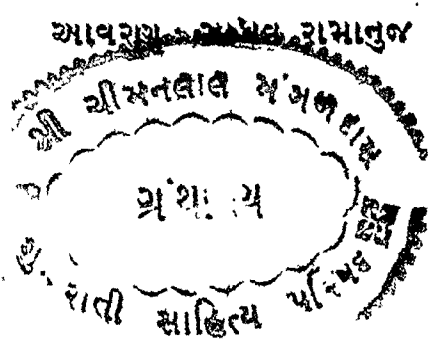 આવરણ માધવ રામાનુજ
શ્રી ચીમનલાલ મંગળદાસ
ગ્રંથાલય
ગુજરાતી સાહિત્ય પરિષદ